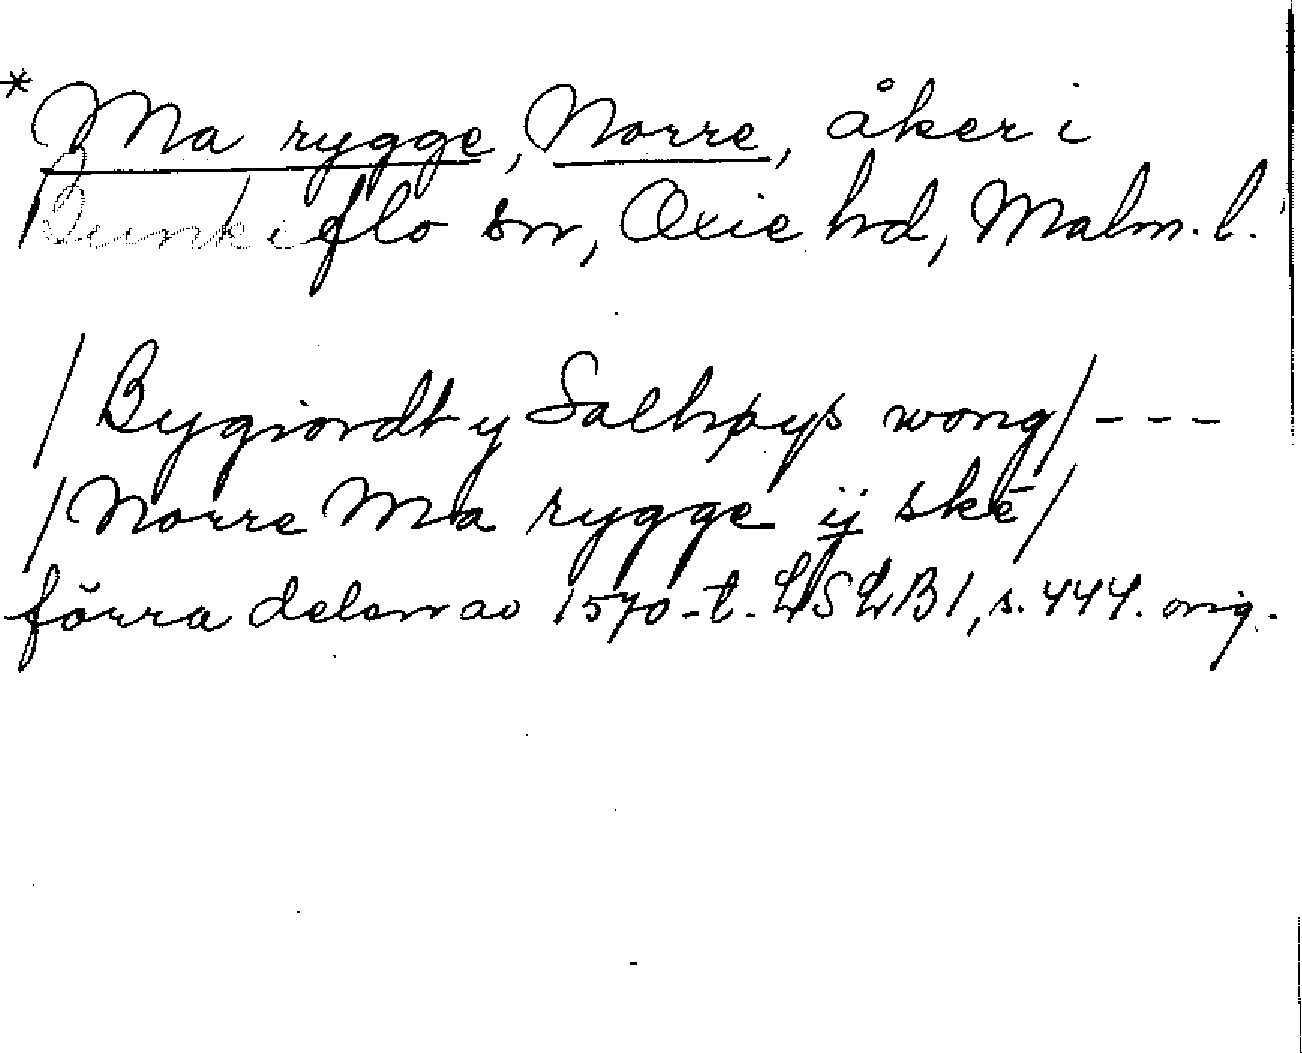 * Ma rygge, Norre, åker i
Bunkeflo sn, Oxie hd, Malm. l.
/ Bygiordt y Salhøys wong / ---
/ Norre Ma rygge ij skē /
förra delen av 1570-t. LSLB 1, s. 444. orig.